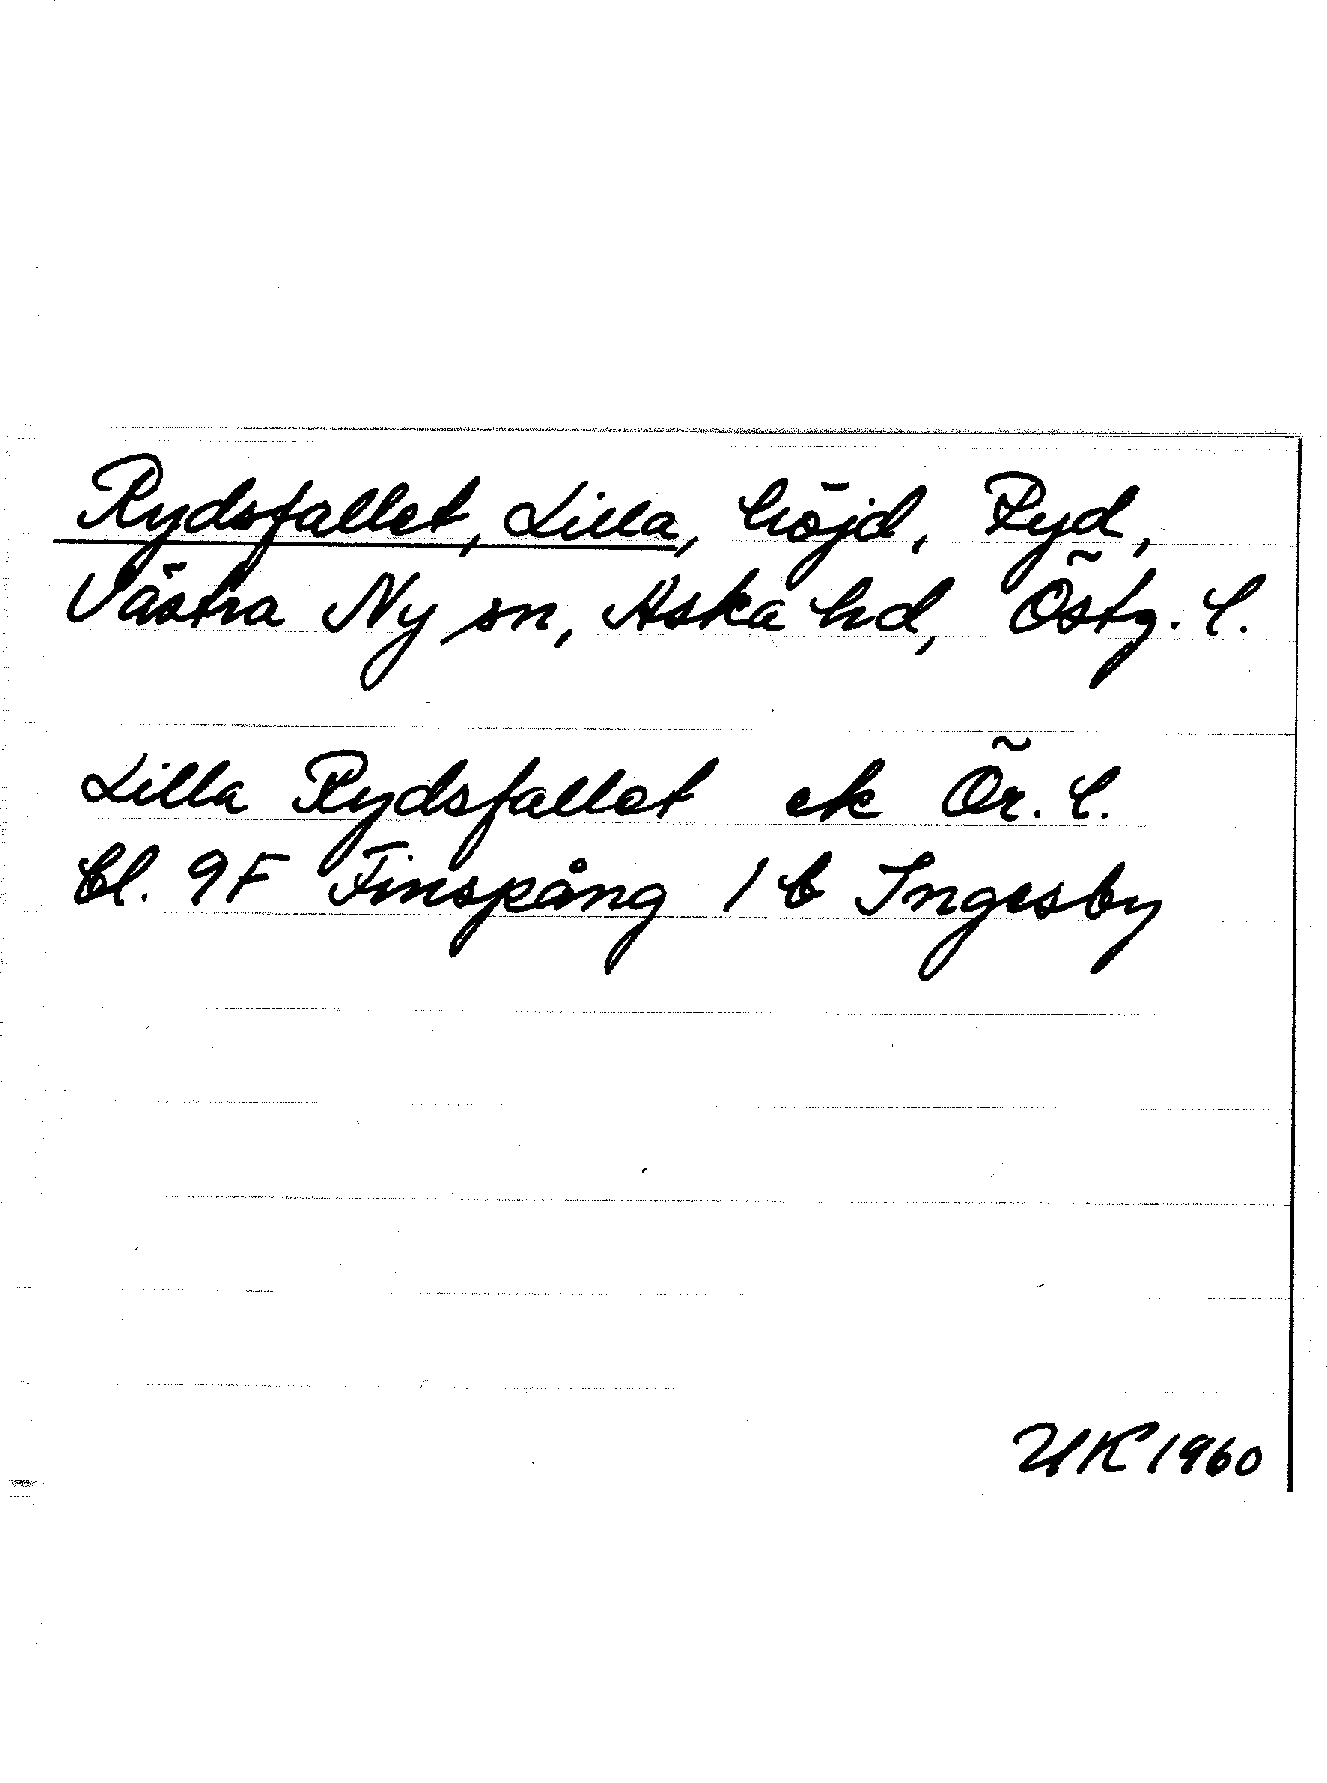 Rydsfallet, Lilla, höjd, Ryd,
Västra Ny sn, Aska hd, Östg. l.
Lilla Rydsfallet ek Ör. l.
bl. 9F Finspång 1 b Ingesby
UK 1960